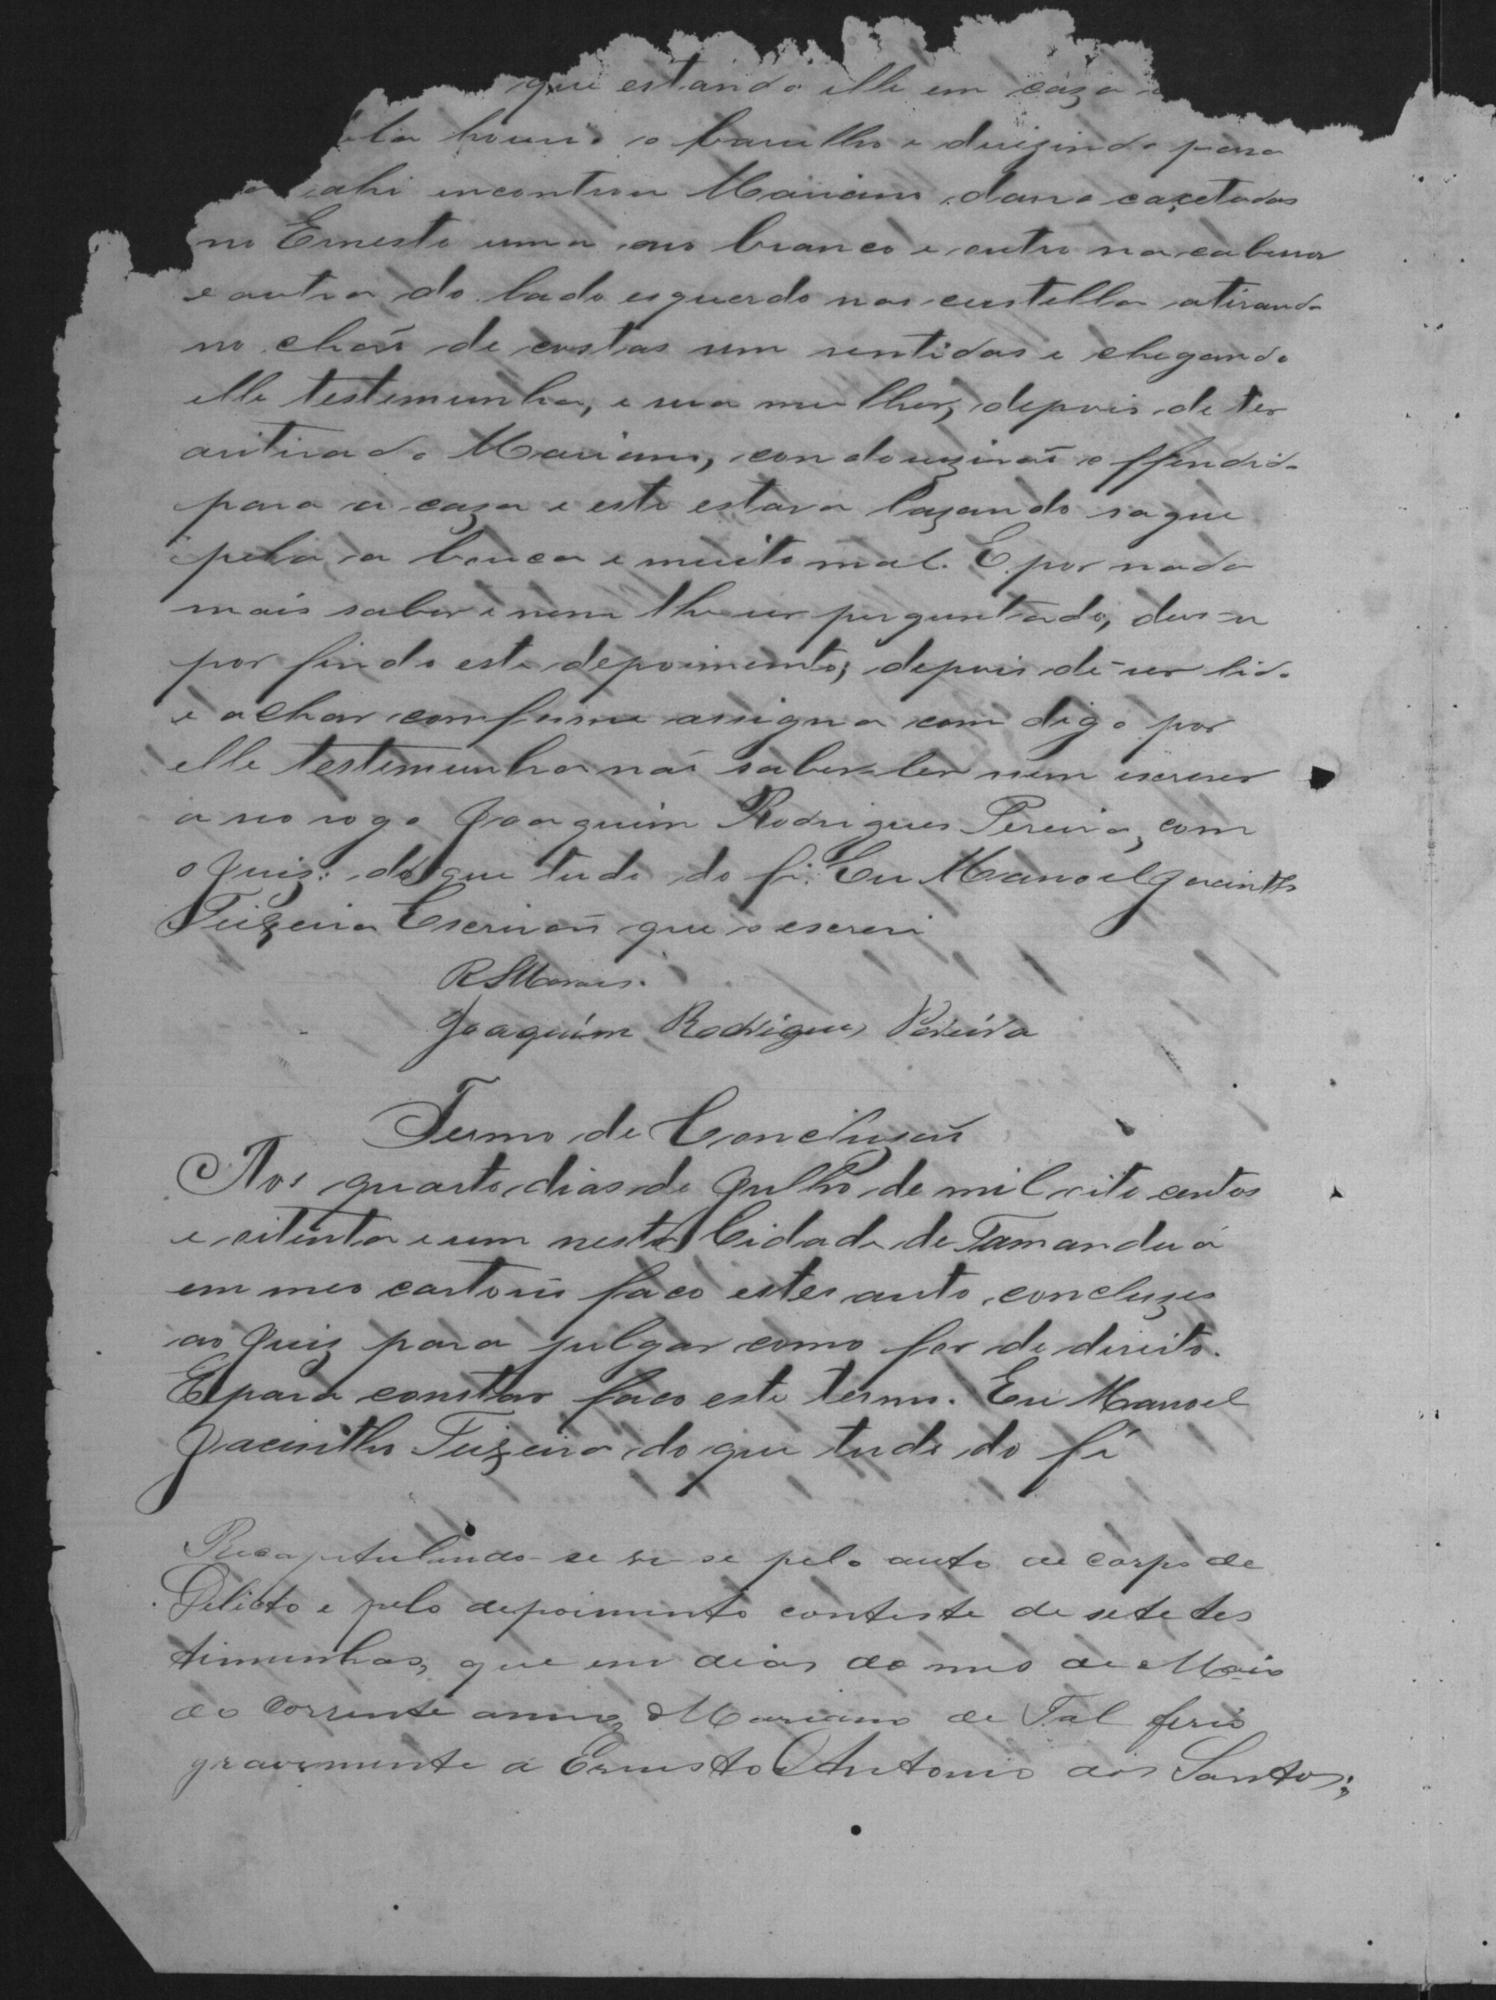 que estando elle em caza
houve o baralho e dirigindo para
ahi encontrou Mariano dano cacetadas
no Ernesto uma no branco e outro na cabessa
e outra do lado esquerdo nas custella atirando
no chaõ de costas sem sentidos e chegando
elle testemunha, e sua mulher, depois de ter
ritirado Mariano, condouziraõ o ffendido
para a caza e este estava lançando sague
pela a bouca e muito mal. E por nada
mais saber e nem lhe ser perguntado, deu-se
por findo este depoimento; depois de ser lido
e achar comforme assigna com digo por
elle testemunha naõ saber ler nem escrever
a seo rogo Joaquim Rodrigues Pereira, com
o Juiz: do que tudo do fé. Eu Manoel Jacintho
Teixeira Escrivaõ que o escrevi
RSMoraes.
Joaquim Rodrigues Pereira
Termo de Concluzaõ
Aos quarto dias de Julho de mil oito centos
e sitenta e um nesta Cidade de Tamanduá
em meo cartorio faco estes auto concluzos
ao Juiz para julgar como for de direito.
E para constar faco este termo. Eu Manoel
Jacintho Teixeira do que tudo do fé
Recapitulando-se ve se pelo auto de corpo de
Delicto e pelo depoimento conteste de sete tes
timunhas, que em dias do mes de Maio
do corrente anno, Mariano de Tal ferio
gravemente a Ernesto Antonio dos Santos;